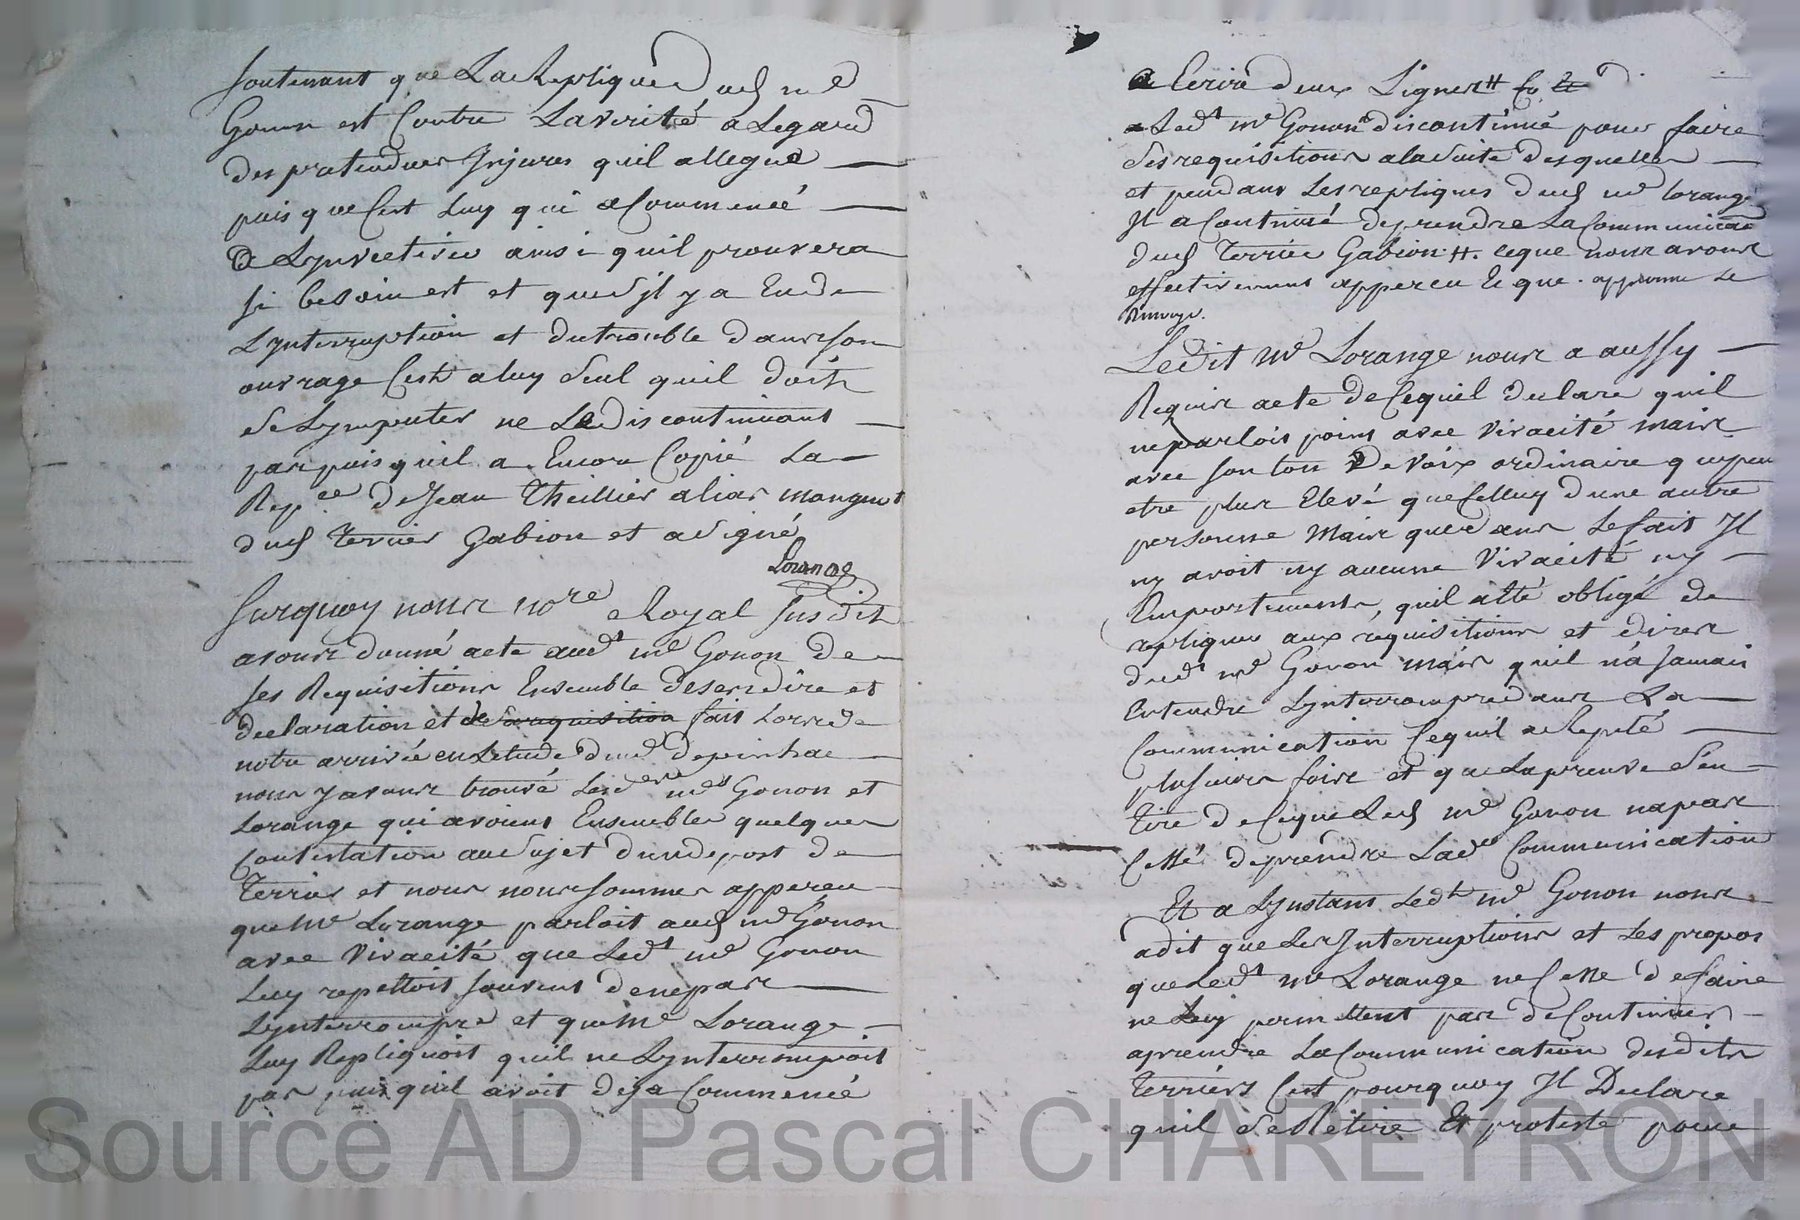 soutenant que La Replique dud me
Gonon est Contre Laverité a Legard
des pretendues Injures quil allegue
puis que Cest Luy qui a Commencé
a Lynvective ainsi quil prouvera
si besoin est et que sil y a Eu de
Lynterruption et dutrouble dans son
ouvrage Cest a luy seul quil doit
se Lymputer ne Le discontinuant
pas puis quil a Encore Copié La
Repce de Jean Theillier alias mangent
dud terrier Gabion et a signé
Lorange
Surquoy nous nore Royal susdit
avons donné acte audt me Gonon de
ses Requisitions Ensemble deses dire et
declaration et de sa requisition fait Lors de
notre arrivée en Letude dud
nous y avons trouvé Lesd mes Gonon et
Lorange qui avoient Ensembles quelques
Contestation au sujet dun depost de
Terrier et nous nous sommes apperçu
que Me Lorange parloit aud me Gonon
avec Vivacité que Ledt me Gonon
Luy repettoit souvent de ne pas
Lynterrompre et que Me Lorange
Luy Repliquoit quil ne Lynterrompoit
pas puis quil avoit deja Commencé
a Ecrire deux Lignes
Ledt me Gonon discontinué pour faire
ses requisitions a la suite desquelles
et pendant Les repliques dud me Lorange
Il a Continué de prendre La Communicaon
dud terrier Gabion. ce que nous avons
effectivement apperçu approuvé Le
Renvoye.
Ledit Me Lorange nous a aussy
Requis acte de Cequil declare quil
ne parlois point avec Vivacité mais
avec son ton de Voix ordinaire qui peu
etre plus Elevé que Celluy dune autre
personne Mais que dans Le fait Il
ny avoit ny aucune Vivacité ny
Emportements, quil a été obligé de
repliquer aux requisitions et dires
dudt me Gonon mais quil na Jamais
Entendu Lynterrompre dans La
Communication Cequil a Repeté
plusieurs fois et que La preuve sen
tire de Ceque Led me Gonon na pas
Cessé de prendre Lade Communication
Et a Lynstant Ledt me Gonon nous
a dit que Les Interruptions et Les propos
que Ledt me Lorange ne Cesse de faire
ne Luy permettent pas de Continuer
a prendre La Communication desdits
Terriers Cest pourquoy Il Declare
quil se Retire Et proteste pour
Source AD Pascal CHAREYRON